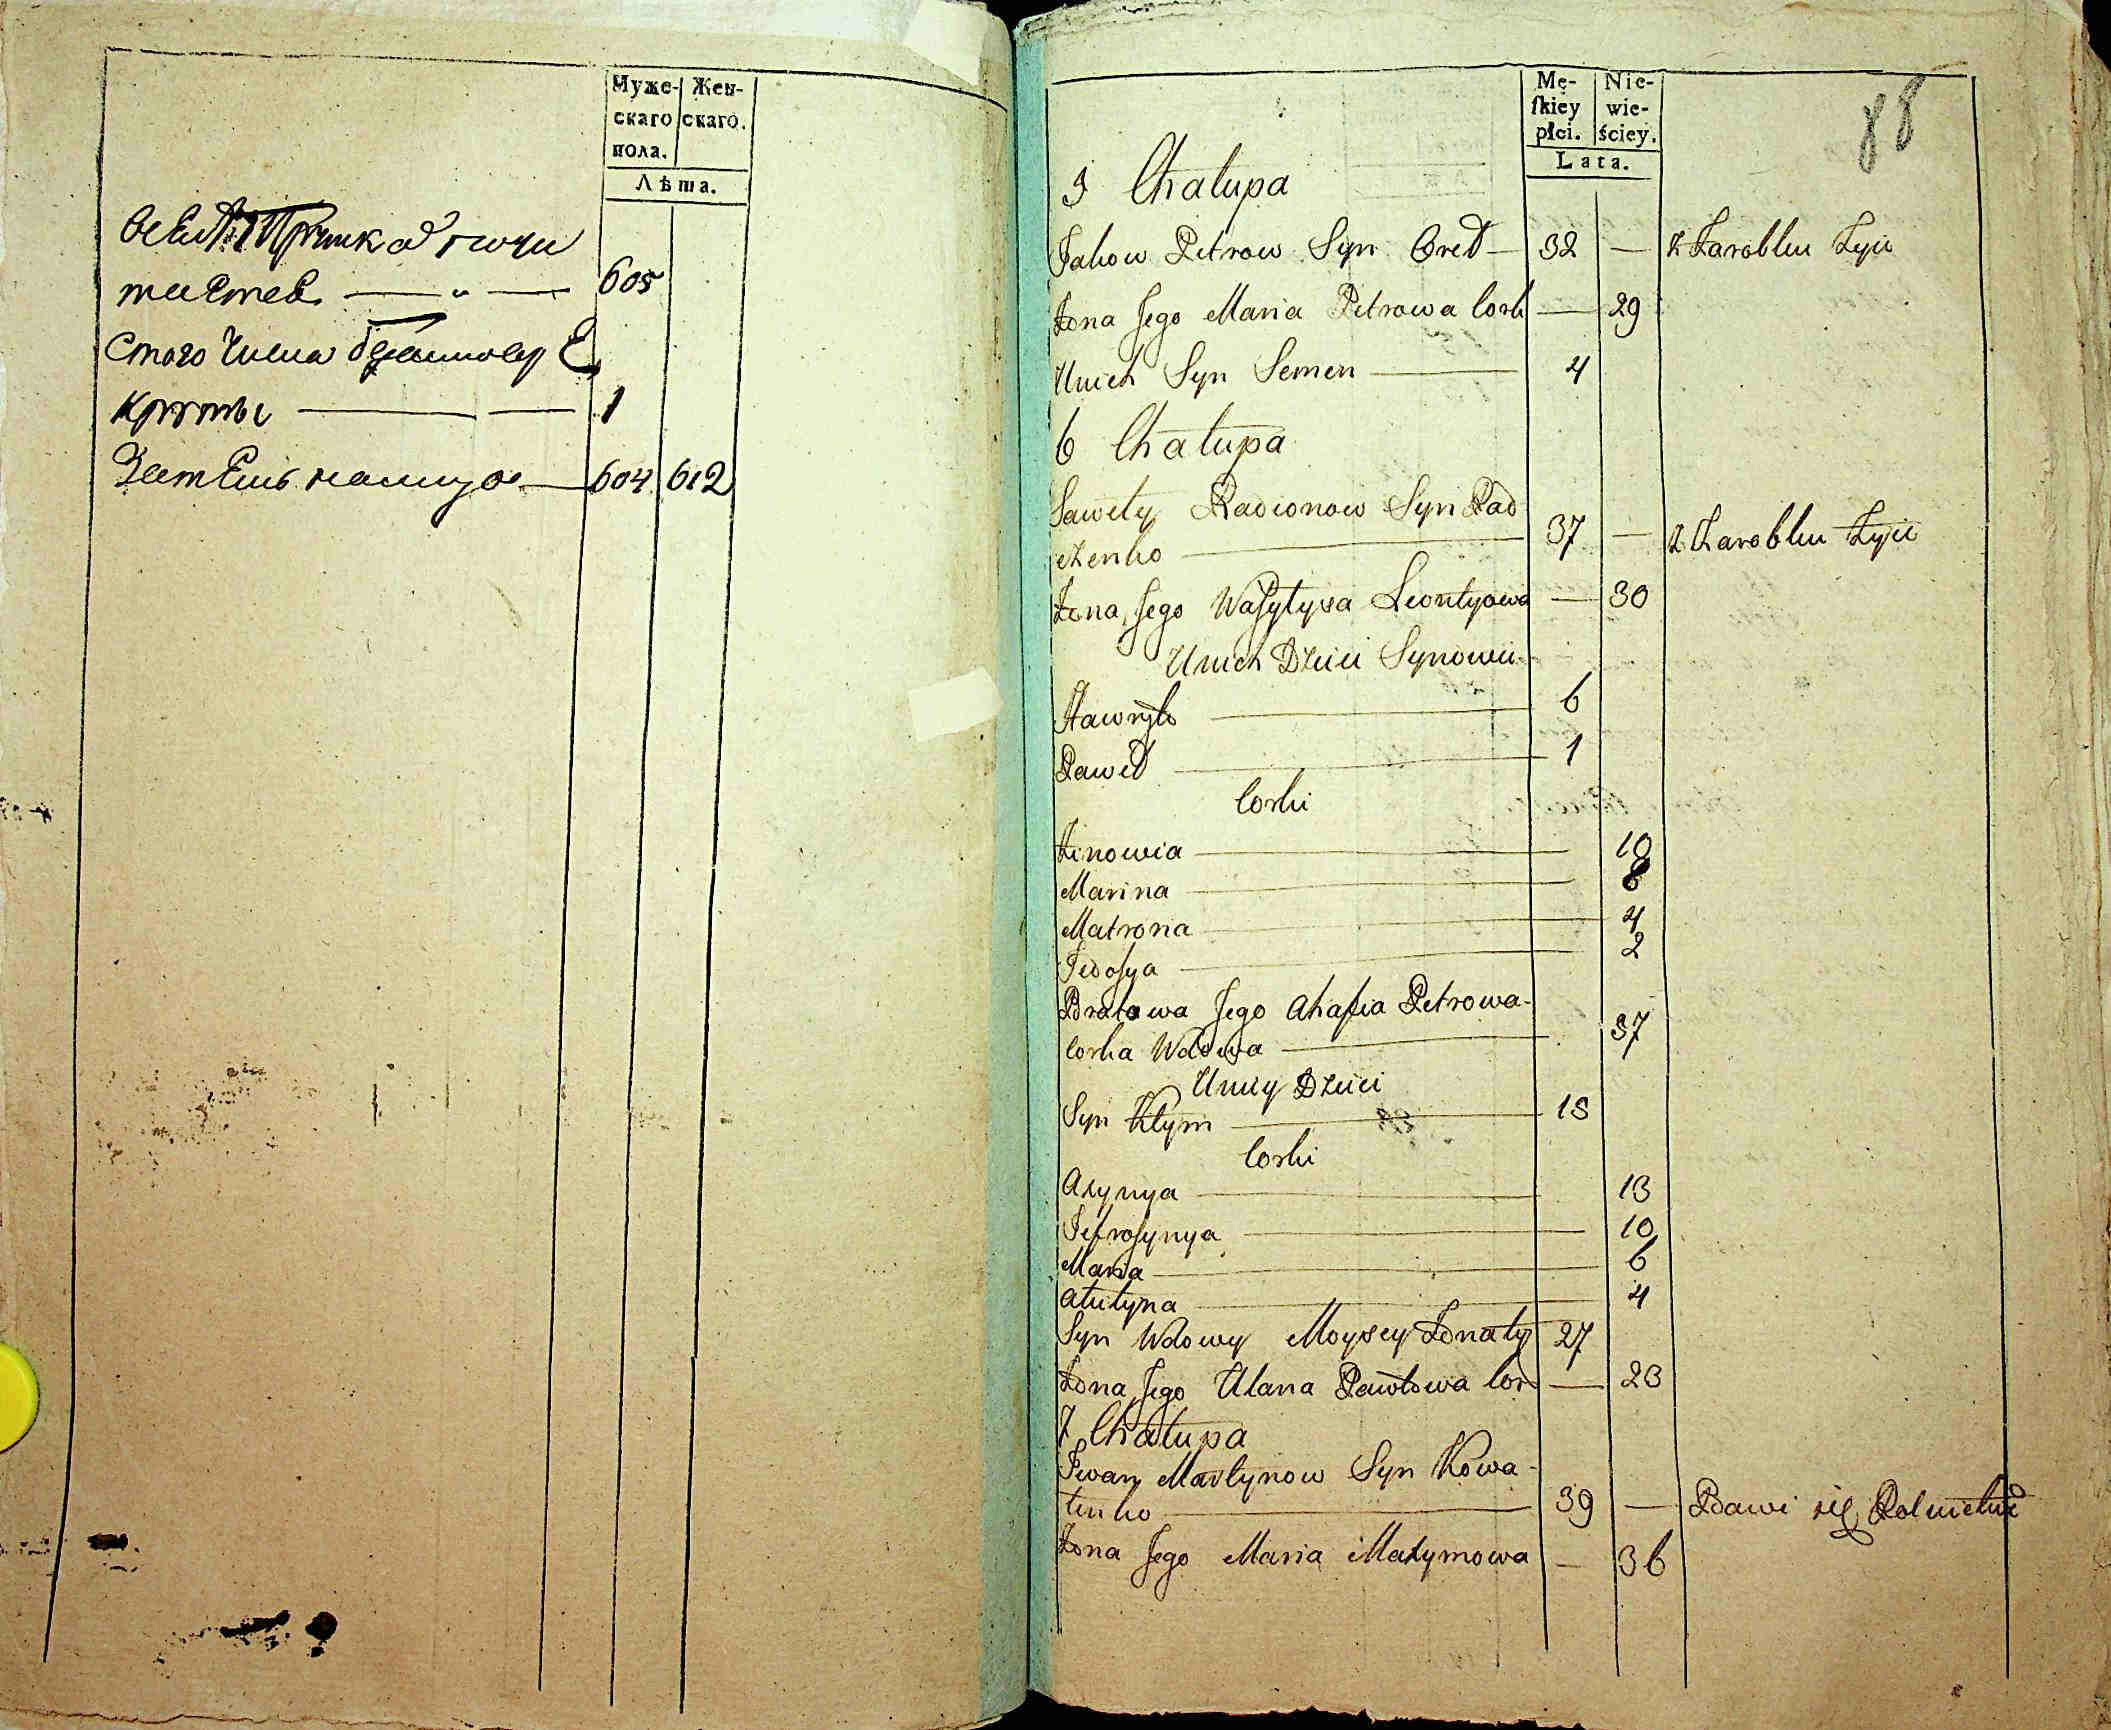 Муже-
скаго
пола.
Жен-
скаго.
Лѣта.
605
Стого числа
1
604 612
Mę-
skiey
płci.
Nie-
wie-
ściey.
Lata.
88
5 Chałupa
Jakow Petrow Syn Oreł — 32 — z Zarobku Żyie
Żona Jego Maria Petrowa Cork — 29
U nich Syn Semen — 4
6 Chałupa
Sawely Radionow Syn Rad
czenko — 37 — z Zarobku Żyie
Żona Jego Wasylysa Leontyowa — 30
U nich Dzieci Synowie
Hawryło — 6
Paweł — 1
Corki
Zinowia — 10
Marina — 8
Matrona — 4
Fedosya — 2
Bratowa Jego Ahafia Petrowa-
Corka Wdowa — 37
U niey Dzieci
Syn Kłym — 15
Corki
Axynya — 13
Jefrosynya — 10
Maria — 6
Akulyna — 4
Syn Wdowy Moysey Żonaty 27
Żona Jego Ulana Pawłowa Cor — 23
7 Chałupa
Iwan Martynow Syn Kowa-
lenko — 39 — Bawi się Rolnictwe
Żona Jego Maria Maxymowa — 36